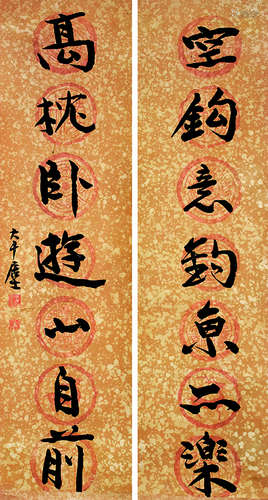 空鈎意釣魚亦樂
高枕卧遊山自前
大千居士